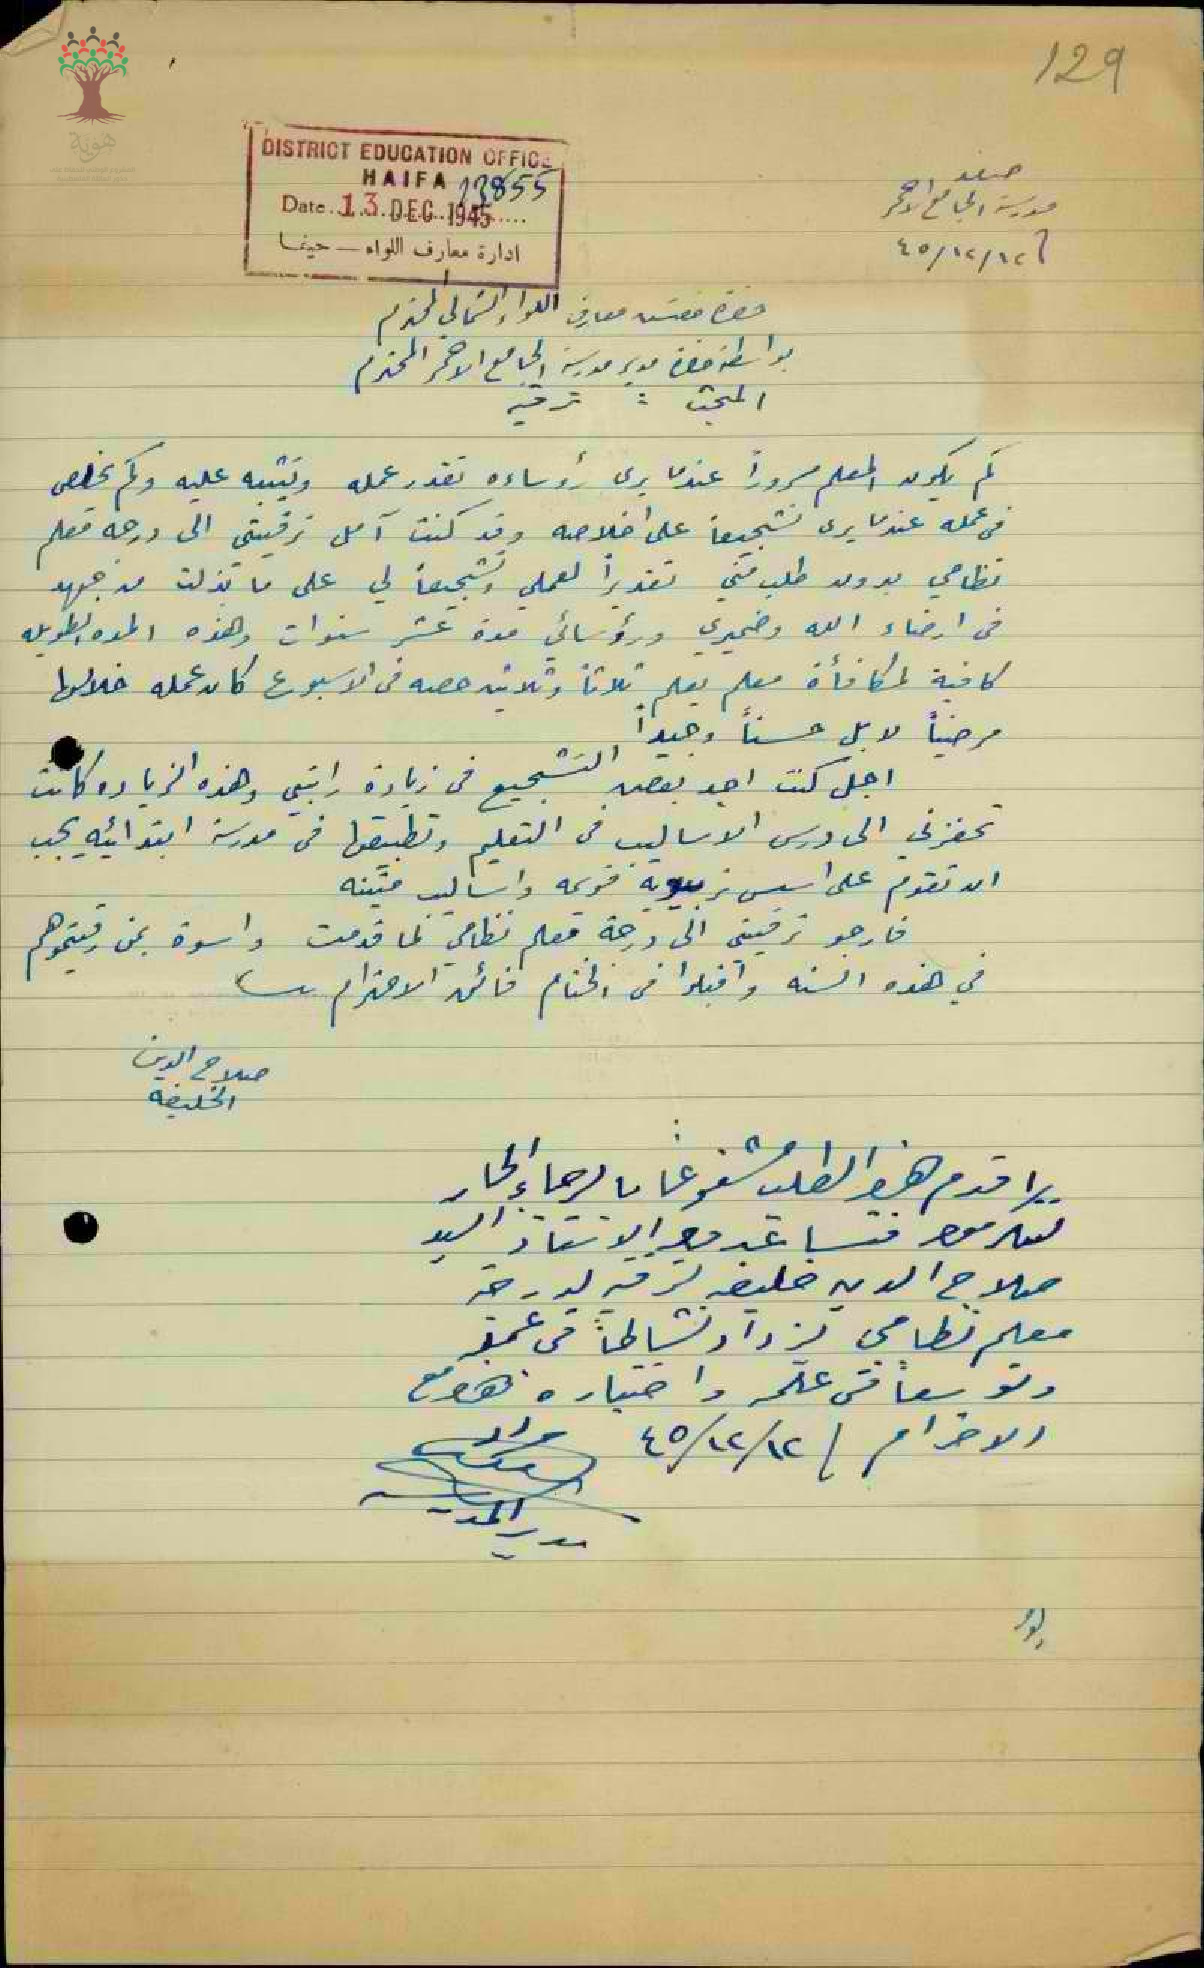 129
هوية
DISTRICT EDUCATION OFFICE
HAIFA 13855
Date 13 DEC 1945
ادارة معارف اللواء — حيفا
صفد
مدرسة الجامع الاحمر
٤٥/١٢/١٢
حضرة مفتش معارف اللواء الشمالي المحترم
بواسطة حضرة مدير مدرسة الجامع الاحمر المحترم
المبحث : ترقيه
كم يكون المعلم مسروراً عندما يرى رؤساءه تقدر عمله وتثيبه عليه وكم يخلص
في عمله عندما يرى تشجيعاً على اخلاصه وقد كنت آمل ترقيتي الى درجه معلم
نظامي بدون طلب مني تقديراً لعملي وتشجيعاً لي على ما بذلت من جهد
في ارضاء الله وضميري ورؤسائي مدة عشر سنوات وهذه المده الطويله
كافية لمكافأة معلم يعلم ثلاثا وثلاثين حصه في الاسبوع كان عمله خلالها
مرضياً لا بل حسناً وجيداً
اجل كنت اجد بعض التشجيع في زيادة راتبي وهذه الزياده كانت
تحفزني الى درس الاساليب في التعليم وتطبيقها في مدرسة ابتدائيه يجب
ان تقوم على اسس تربويه قويمه واساليب متينه
فارجو ترقيتي الى درجة معلم نظامي لما قدمت واسوة بمن رقيتموهم
في هذه السنه واقبلوا في الختام فائق الاحترام
صلاح الدين
الخليفه
اقدم هذا الطلب مشفوعاً بالرجاء الحار
الاستاذ السيد
صلاح الدين خليفه لدرجة
معلم نظامي نشاطاً في عمله
وتوسعاً في علمه واختباره مع
الاحترام ٤٥/١٢/١٢
مدير المدرسة